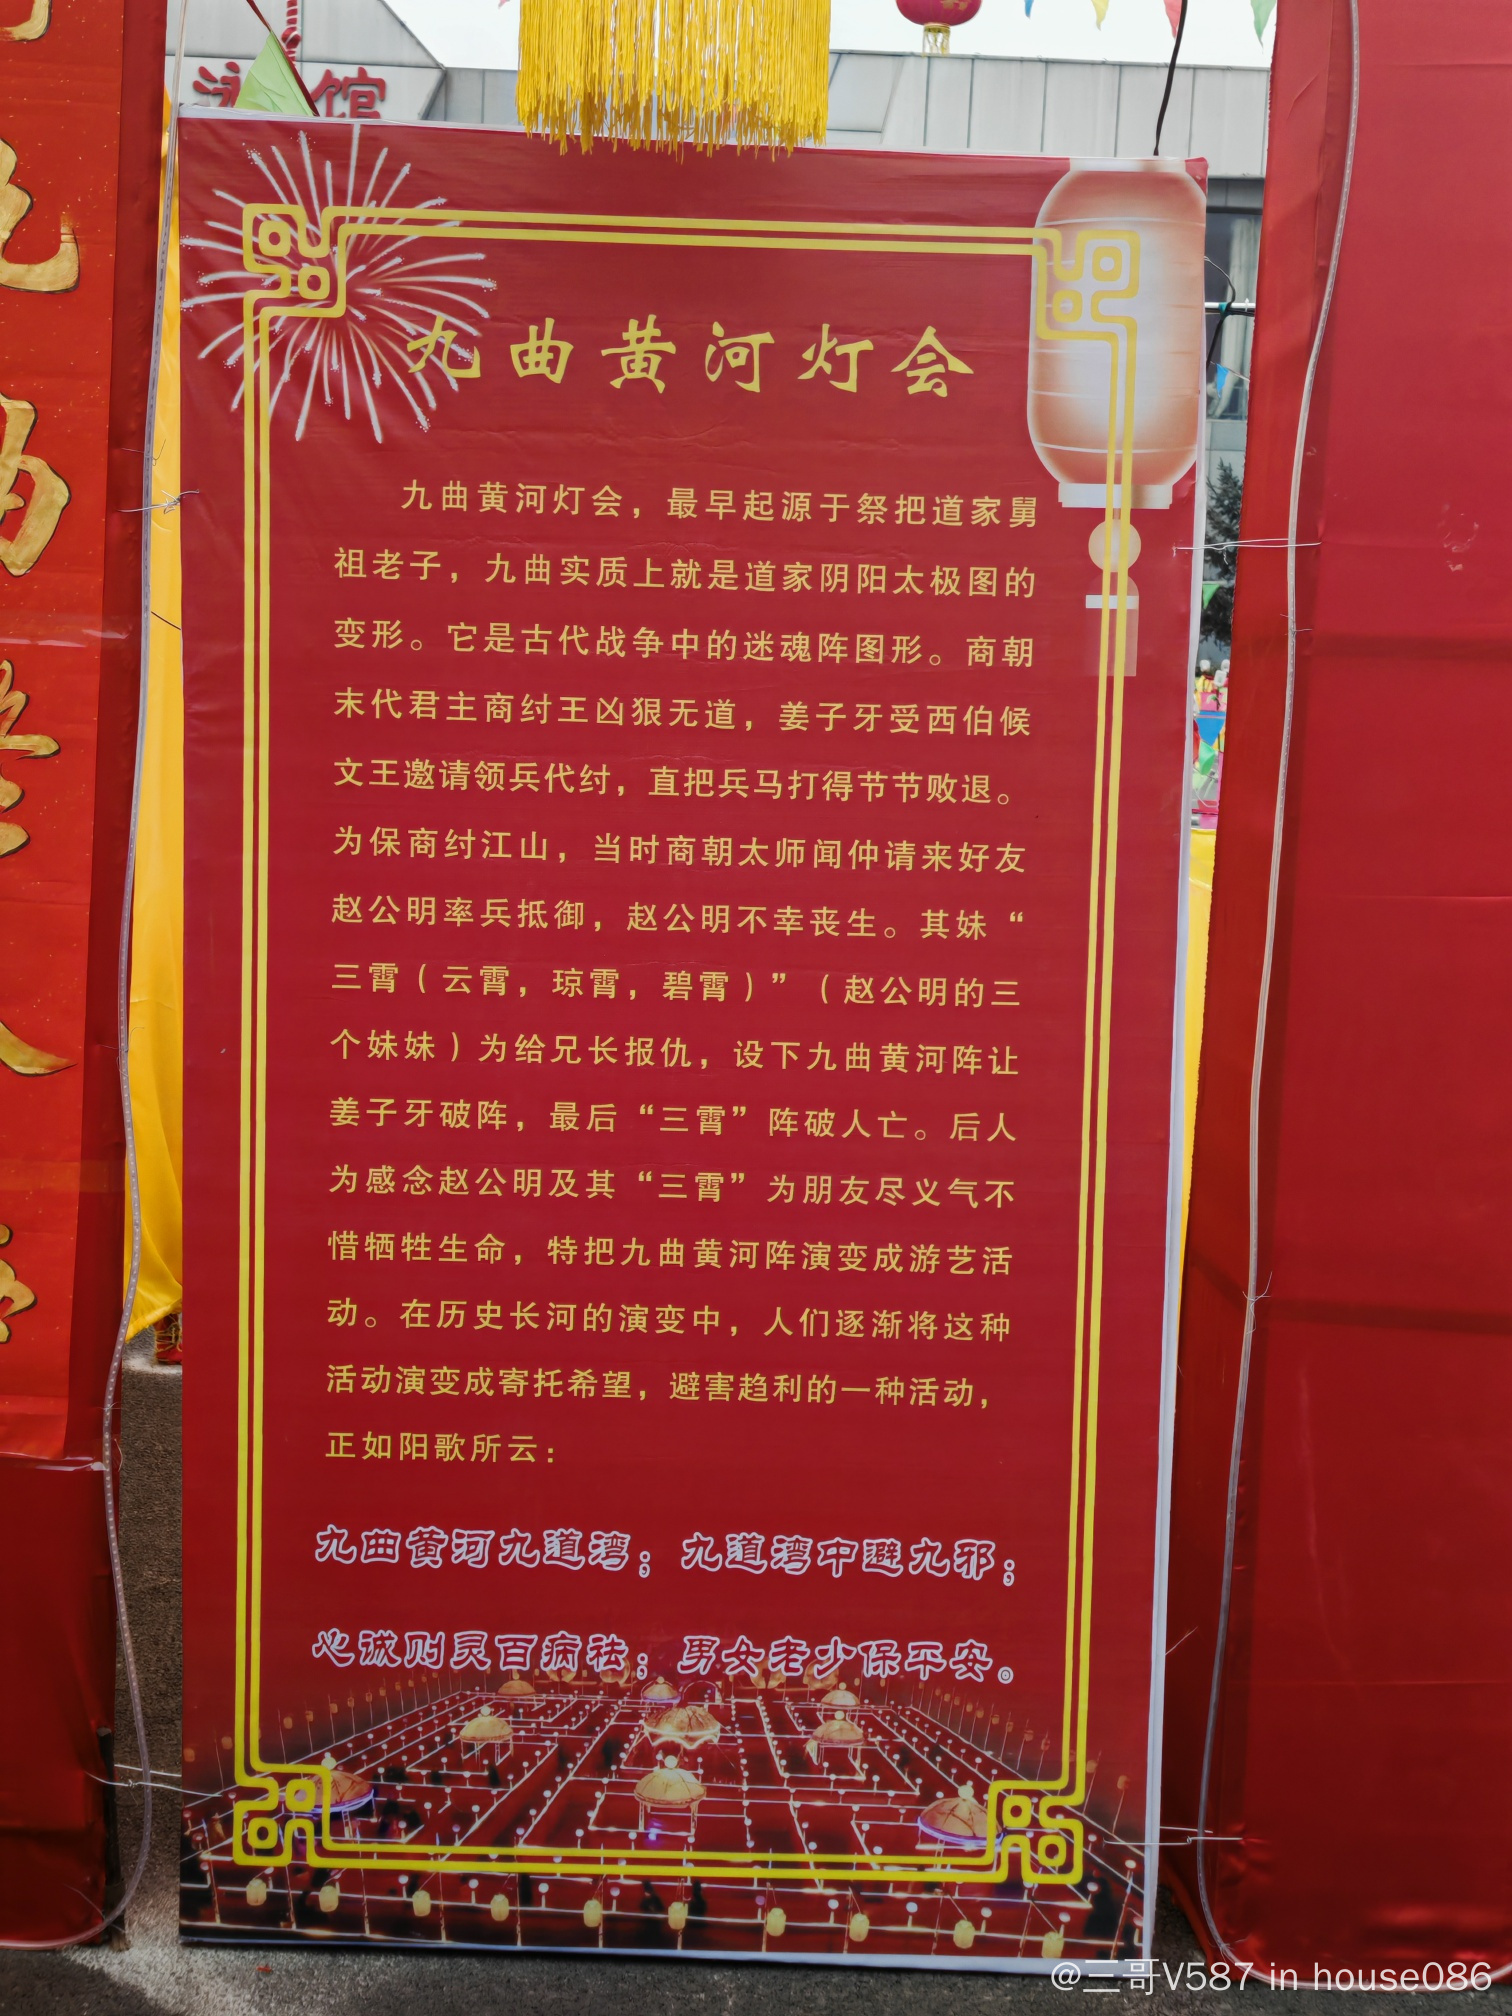 泳
馆
九曲黄河灯会
九曲黄河灯会，最早起源于祭把道家舅
祖老子，九曲实质上就是道家阴阳太极图的
变形。它是古代战争中的迷魂阵图形。商朝
末代君主商纣王凶狠无道，姜子牙受西伯候
文王邀请领兵代纣，直把兵马打得节节败退。
为保商纣江山，当时商朝太师闻仲请来好友
赵公明率兵抵御，赵公明不幸丧生。其妹“
三霄（云霄，琼霄，碧霄）”（赵公明的三
个妹妹）为给兄长报仇，设下九曲黄河阵让
姜子牙破阵，最后“三霄”阵破人亡。后人
为感念赵公明及其“三霄”为朋友尽义气不
惜牺牲生命，特把九曲黄河阵演变成游艺活
动。在历史长河的演变中，人们逐渐将这种
活动演变成寄托希望，避害趋利的一种活动，
正如阳歌所云：
九曲黄河九道湾；九道湾中避九邪；
心诚则灵百病祛；男女老少保平安。
@三哥V587 in house086